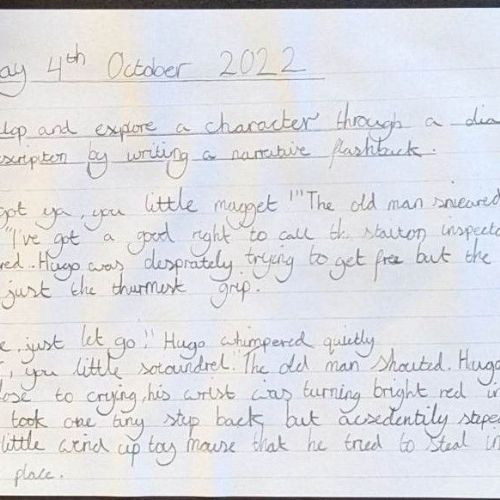 ay 4th October 2022
lop and explore a character through a dia
scription by writing a narrative flashback.
got ya, you little magget !" The old man snieared
"I've got a good right to call th staiton inspecto
red. Hugo was desprately trying to get free but the
just the thurmest grip.
e just let go!" Hugo whimpered quietly
, you little scoundrel." The old man shouted. Hugo
lose to crying, his wrist was turning bright red in
took one tiny step back but acsedentily steped
little wind up toy mouse that he tried to steal in
place.